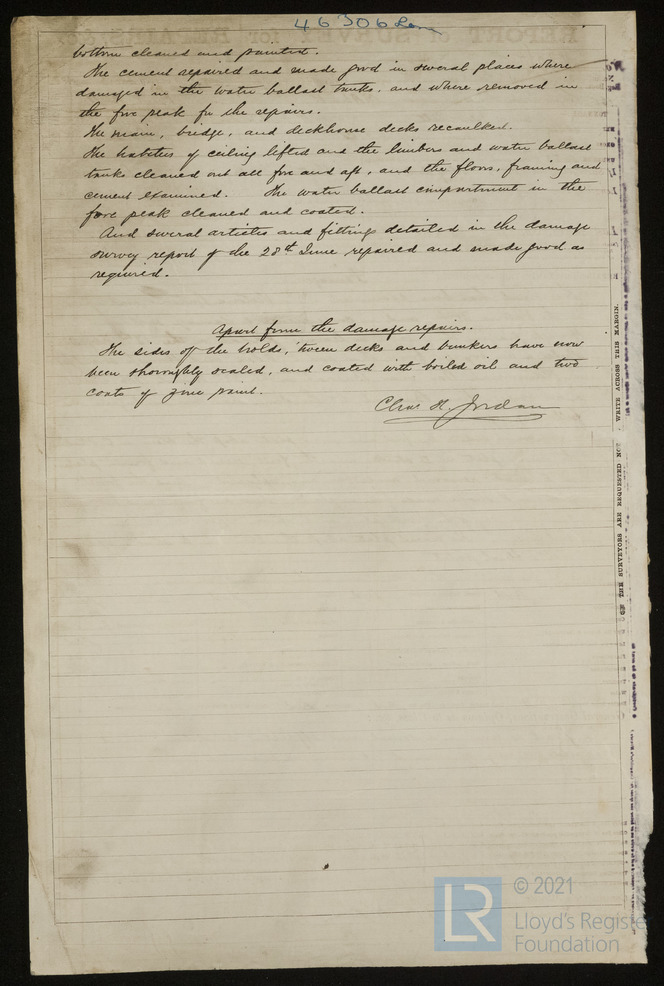 46306 Lon
bottom cleaned and painted.
The cement repaired and made good in several places where
damaged in the water ballast tanks, and where removed in
the fore peak for the repairs.
The main, bridge, and deckhouse decks recaulked.
The hatches of ceiling lifted and the limbers and water ballast
tanks cleaned out all fore and aft, and the floors, framing and
cement examined. The water ballast compartment in the
fore peak cleaned and coated.
And several articles and fittings detailed in the damage
survey report of the 28th June repaired and made good as
required.
Apart from the damage repairs.
The sides of the holds, 'tween decks and bunkers have now
been thoroughly scaled, and coated with boiled oil and two
coats of zinc paint.
Chas. H. Jordan
THE SURVEYORS ARE REQUESTED NOT
WRITE ACROSS THIS MARGIN.
LR
© 2021
Lloyd's Registe
Foundation